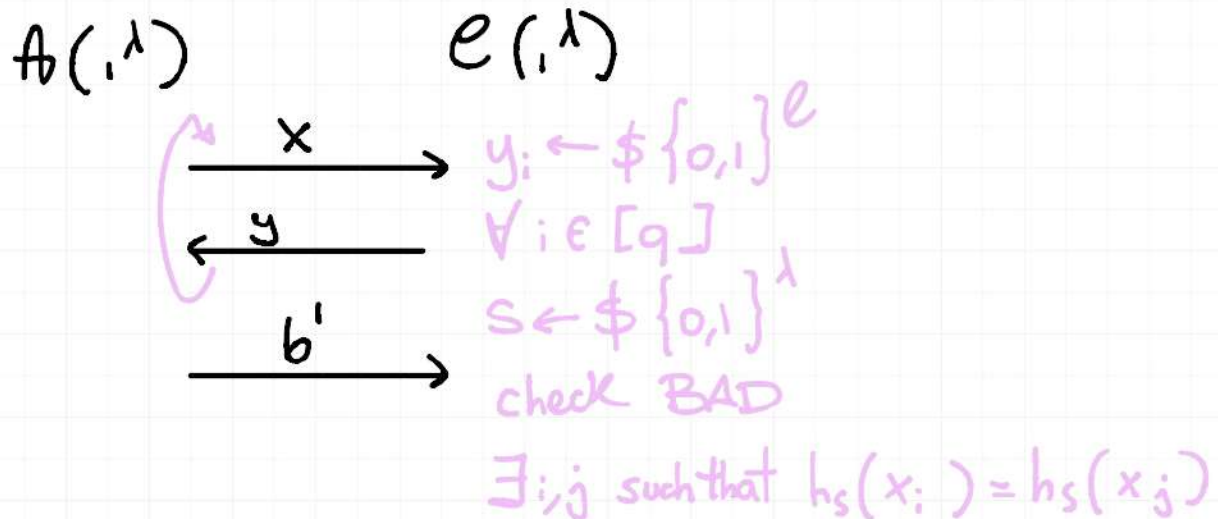 A(1^λ) C(1^λ)
x y_i ←$ {0,1}^ℓ
y ∀ i ∈ [q]
s ←$ {0,1}^λ
b' check BAD
∃ i,j such that h_s(x_i) = h_s(x_j)